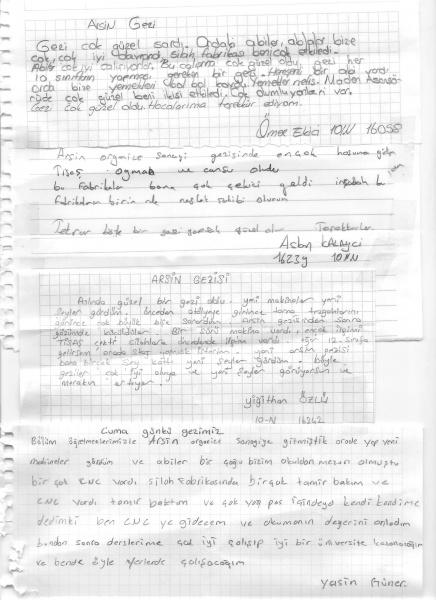 Arsin Gezi
Gezi çok güzel sardı. Ordaki abiler, ablalar bize
çok, çok iyi davrandı silah fabrikası beni çok etkiledi.
Abiler çok iyi çalışıyorlar. Bu çalışma çok güzel oldu. gezi her
10. sınıfların yapması gereken bir gezi. Hepsini bir abi yardı
orda bize yemekten bol bol koydu Yemekler nefis. Maden
çok güzel beni ikisi etkiledi. Çok olumluyanları var.
Gezi çok güzel oldu. Hocalarıma teşekkür ediyorum.
Ömer 10/N 16058
Arsin organize sanayi gezisinde en çok hoşuma giden
Tisaş oymak ve cansu oldu
bu fabrikalar bana çok çekici geldi inşallah bu
fabrikaların birinde meslek sahibi olurum
Tekrar böyle bir gezi yapmak güzel olur Teşekkürler
16239 10/N
ARSİN GEZİSİ
Aslında güzel bir gezi oldu. yeni makinalar yeni
şeyler gördüm. önceden atölyeye girince torna tezgahlarını
görünce çok büyük bişe sanardım Arsin gezisinden sonra
gözümde küçüldüler. Bir sürü makina vardı. en çok ilgimi
TİSAŞ çekti silahlara önceden ilgim vardı. eğer 12. sınıfa
gelirsem orada staj yapmak isterim. yeni arsin gezisi
bana birçok şey kattı yeni şeyler gördüm. böyle
geziler çok iyi oluyo ve yeni şeyler görüyorsun ve
merakın artıyor.
yiğithan ÖZLÜ
10-N 16242
Cuma günkü gezimiz
Bölüm öğretmenlerimizle Arsin organize Sanayiye gitmiştik orada yep yeni
makineler gördüm ve abiler bir çoğu bizim okuldan mezun olmuştu
bir çok CNC vardı silah fabrikasında birçok tamir bakım ve
CNC vardı tamir baktım ve çok yap pas içindeydi kendi kendime
dedimki ben CNC ye gidecem ve okumanın değerini anladım
bundan sonra derslerime çok iyi çalışıp iyi bir üniversite kazanacağım
ve bende öyle yerlerde çalışacağım
Yasin Güner.